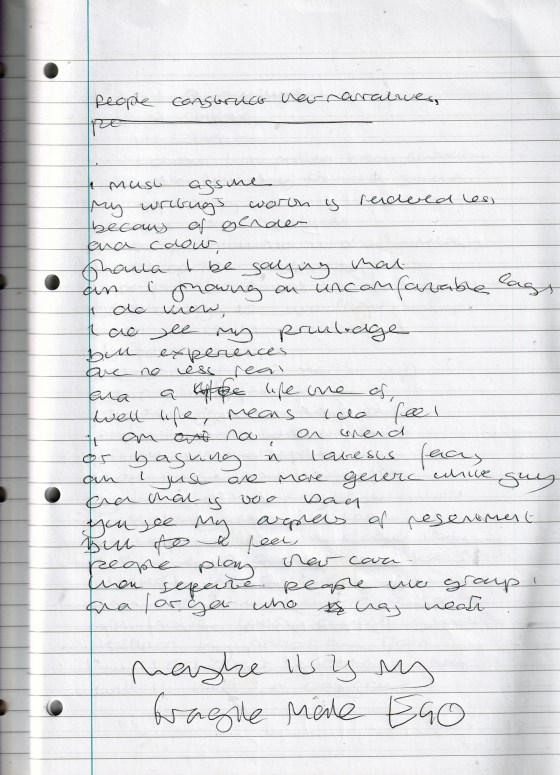 People construct their narratives,
pe
I must assume
My writing's worth is rendered less
becaus of gender
and colour,
should I be saying that
am I showing an uncomfortable
I do know,
I do see my priviledge
but experiences
are no less real
and a life time of,
well life, means I do feel
I am not on trend
or basking in latests
am I just one more generic white guy
and that is too bad
you see my of resentment
but to feel
people play their card
then seperate people into group
and forget who has
maybe it is my
fragile Male EGO